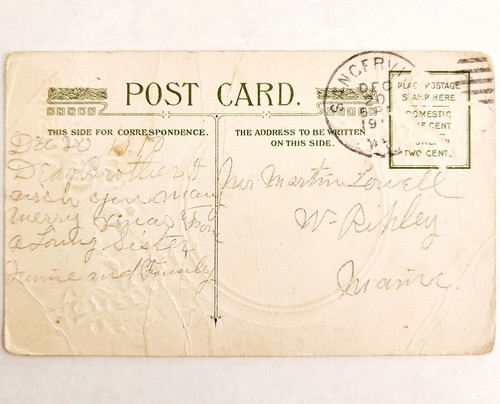 POST CARD.
THIS SIDE FOR CORRESPONDENCE.
THE ADDRESS TO BE WRITTEN
ON THIS SIDE.
SANGERVI
DEC
20
5 P
19
PLACE POSTAGE
STAMP HERE
DOMESTIC
ONE CENT
TWO CENTS
Dec 20 1910
Dear Brother I
wish you many
merry Xmas from
a Loving Sister
and Family
Mr Martin Lowell
W Ripley
Maine